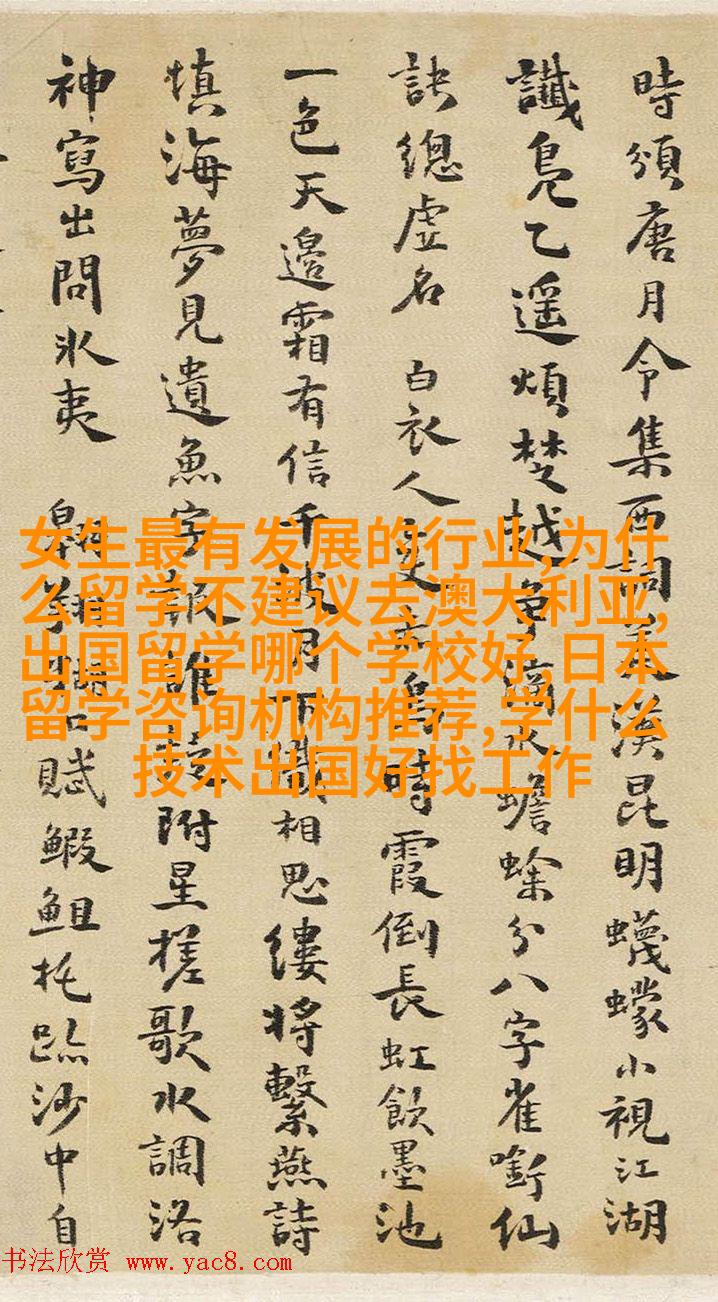 時頒唐月令集西詞昆明蠛蠓小視江湖
讖鳬乙遥煩楚越争滴水蟾蜍分八字雀銜仙
訣總虚名 白衣人變赤烏時霞倒長虹飲墨池
一色天邊霜有信千月下織相思縷将繫燕詩
填海夢見遺魚字報誰附星槎歌水調洛
神寫出問氷夷 翱翔賦鰕䱉托跡沙中自
女生最有发展的行业,为什
么留学不建议去澳大利亚,
出国留学哪个学校好,日本
留学咨询机构推荐,学什么
技术出国好找工作
书法欣赏 www.yac8.com